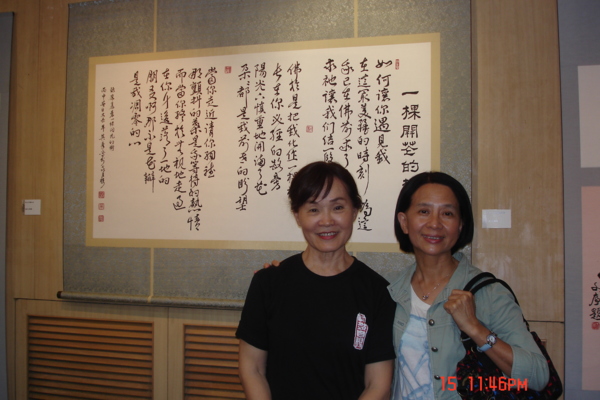 一棵開花的
如何讓你遇見我
在我最美麗的時刻 為這
我已在佛前求了
求祂讓我們結一段
佛於是把我化作一棵
長在你必經的路旁
陽光下慎重地開滿了花
朵朵都是我前世的盼望
當你走近請你細聽
那顫抖的葉是我等待的熱情
而當你終於無視地走過
在你身後落了一地的
朋友啊那不是花瓣
是我凋零的心
15 11:46PM